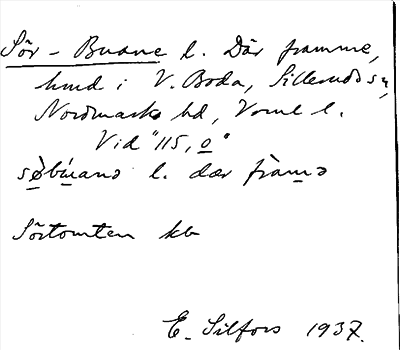 Sör-Buane l. Där framme,
hmd i V. Boda, Sillerud sn,
Nordmarks hd, Vrml l.
Vid "115,0"
søbùanə l. dær fràmə
Sörtomten kb
E. Silfors 1937.